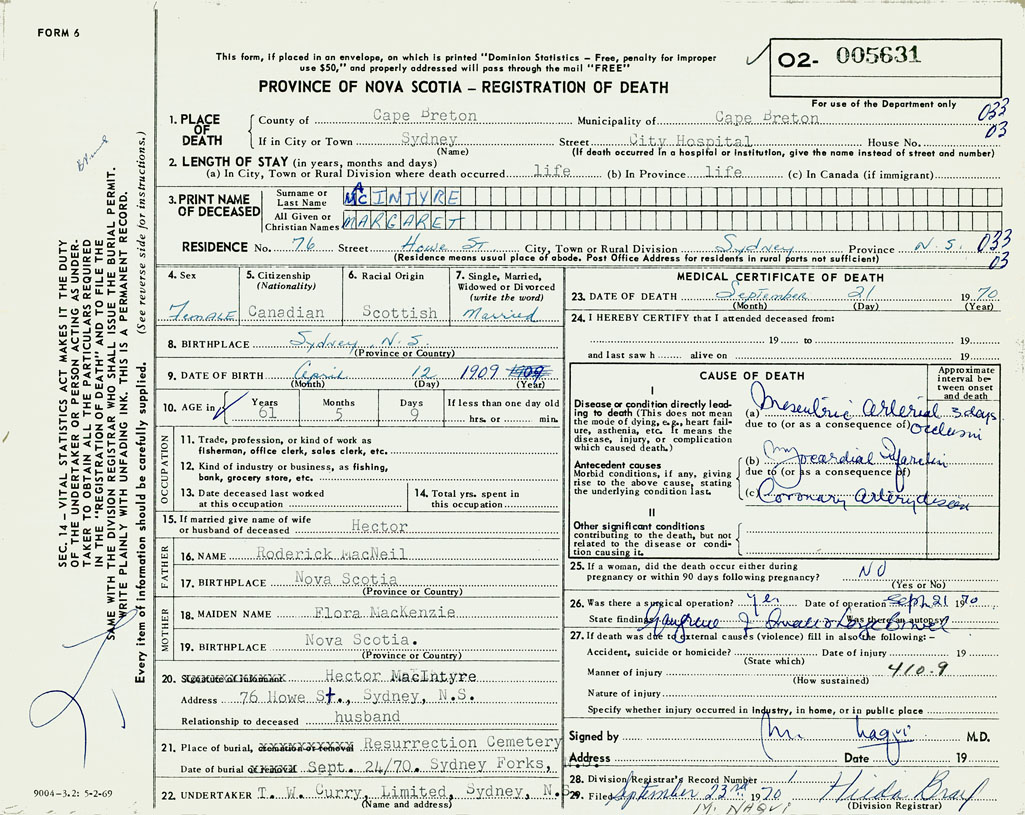 FORM 6
This form, if placed in an envelope, on which is printed "Dominion Statistics - Free, penalty for improper
use $50," and properly addressed will pass through the mail "FREE"
O2- 005631
PROVINCE OF NOVA SCOTIA – REGISTRATION OF DEATH
For use of the Department only
033
03
1. PLACE OF DEATH
County of Cape Breton Municipality of Cape Breton
If in City or Town Sydney Street City Hospital House No.
(Name) (If death occurred in a hospital or institution, give the name instead of street and number)
2. LENGTH OF STAY (in years, months and days)
(a) In City, Town or Rural Division where death occurred life (b) In Province life (c) In Canada (if immigrant)
3. PRINT NAME OF DECEASED
Surname or Last Name MacINTYRE
All Given or Christian Names MARGARET
RESIDENCE No. 76 Street Howe St City, Town or Rural Division Sydney Province N.S. 033
(Residence means usual place of abode. Post Office Address for residents in rural parts not sufficient) 03
4. Sex
Female
5. Citizenship
(Nationality)
Canadian
6. Racial Origin
Scottish
7. Single, Married,
Widowed or Divorced
(write the word)
Married
8. BIRTHPLACE Sydney, N.S.
(Province or Country)
9. DATE OF BIRTH April 12 1909 1909
(Month) (Day) (Year)
10. AGE in Years Months Days If less than one day old
61 5 9 hrs. or min.
OCCUPATION
11. Trade, profession, or kind of work as
fisherman, office clerk, sales clerk, etc.
12. Kind of industry or business, as fishing,
bank, grocery store, etc.
13. Date deceased last worked
at this occupation
14. Total yrs. spent in
this occupation
15. If married give name of wife
or husband of deceased Hector
FATHER
16. NAME Roderick MacNeil
17. BIRTHPLACE Nova Scotia
(Province or Country)
MOTHER
18. MAIDEN NAME Flora MacKenzie
19. BIRTHPLACE Nova Scotia.
(Province or Country)
20. Signature of informant Hector MacIntyre
Address 76 Howe St., Sydney, N.S.
Relationship to deceased husband
21. Place of burial, cremation or removal Resurrection Cemetery
Date of burial or removal Sept. 24/70. Sydney Forks,
22. UNDERTAKER T. W. Curry, Limited, Sydney, N.S.
(Name and address)
MEDICAL CERTIFICATE OF DEATH
23. DATE OF DEATH September 21 1970
(Month) (Day) (Year)
24. I HEREBY CERTIFY that I attended deceased from:
19 to 19
and last saw h alive on 19
CAUSE OF DEATH
Approximate
interval be-
tween onset
and death
I
Disease or condition directly lead-
ing to death (This does not mean
the mode of dying, e.g., heart fail-
ure, asthenia, etc. It means the
disease, injury, or complication
which caused death.)
(a) Mesenteric Arterial 3 days
due to (or as a consequence of) occlusion
Antecedent causes
Morbid conditions, if any, giving
rise to the above cause, stating
the underlying condition last.
(b) Myocardial Infarction
due to (or as a consequence of)
(c) Coronary artery disease
II
Other significant conditions
contributing to the death, but not
related to the disease or condi-
tion causing it.
25. If a woman, did the death occur either during
pregnancy or within 90 days following pregnancy? NO
(Yes or No)
26. Was there a surgical operation? Yes Date of operation Sept 21 1970
State findings Gangrene of Small & Large Bowel Was there an autopsy?
27. If death was due to external causes (violence) fill in also the following: –
Accident, suicide or homicide? Date of injury 19
(State which)
Manner of injury 410.9
(How sustained)
Nature of injury
Specify whether injury occurred in industry, in home, or in public place
Signed by M. Naqvi M.D.
Address Date 19
28. Division Registrar's Record Number 1
29. Filed September 23rd 1970 Hilda Bray
M. NAQVI (Division Registrar)
SEC. 14 – VITAL STATISTICS ACT MAKES IT THE DUTY
OF THE UNDERTAKER OR PERSON ACTING AS UNDER-
TAKER TO OBTAIN ALL THE PARTICULARS REQUIRED
IN THE "REGISTRATION OF DEATH" AND TO FILE THE
SAME WITH THE DIVISION REGISTRAR WHO SHALL ISSUE THE BURIAL PERMIT.
WRITE PLAINLY WITH UNFADING INK. THIS IS A PERMANENT RECORD.
Every item of information should be carefully supplied. (See reverse side for instructions.)
9004-3.2: 5-2-69